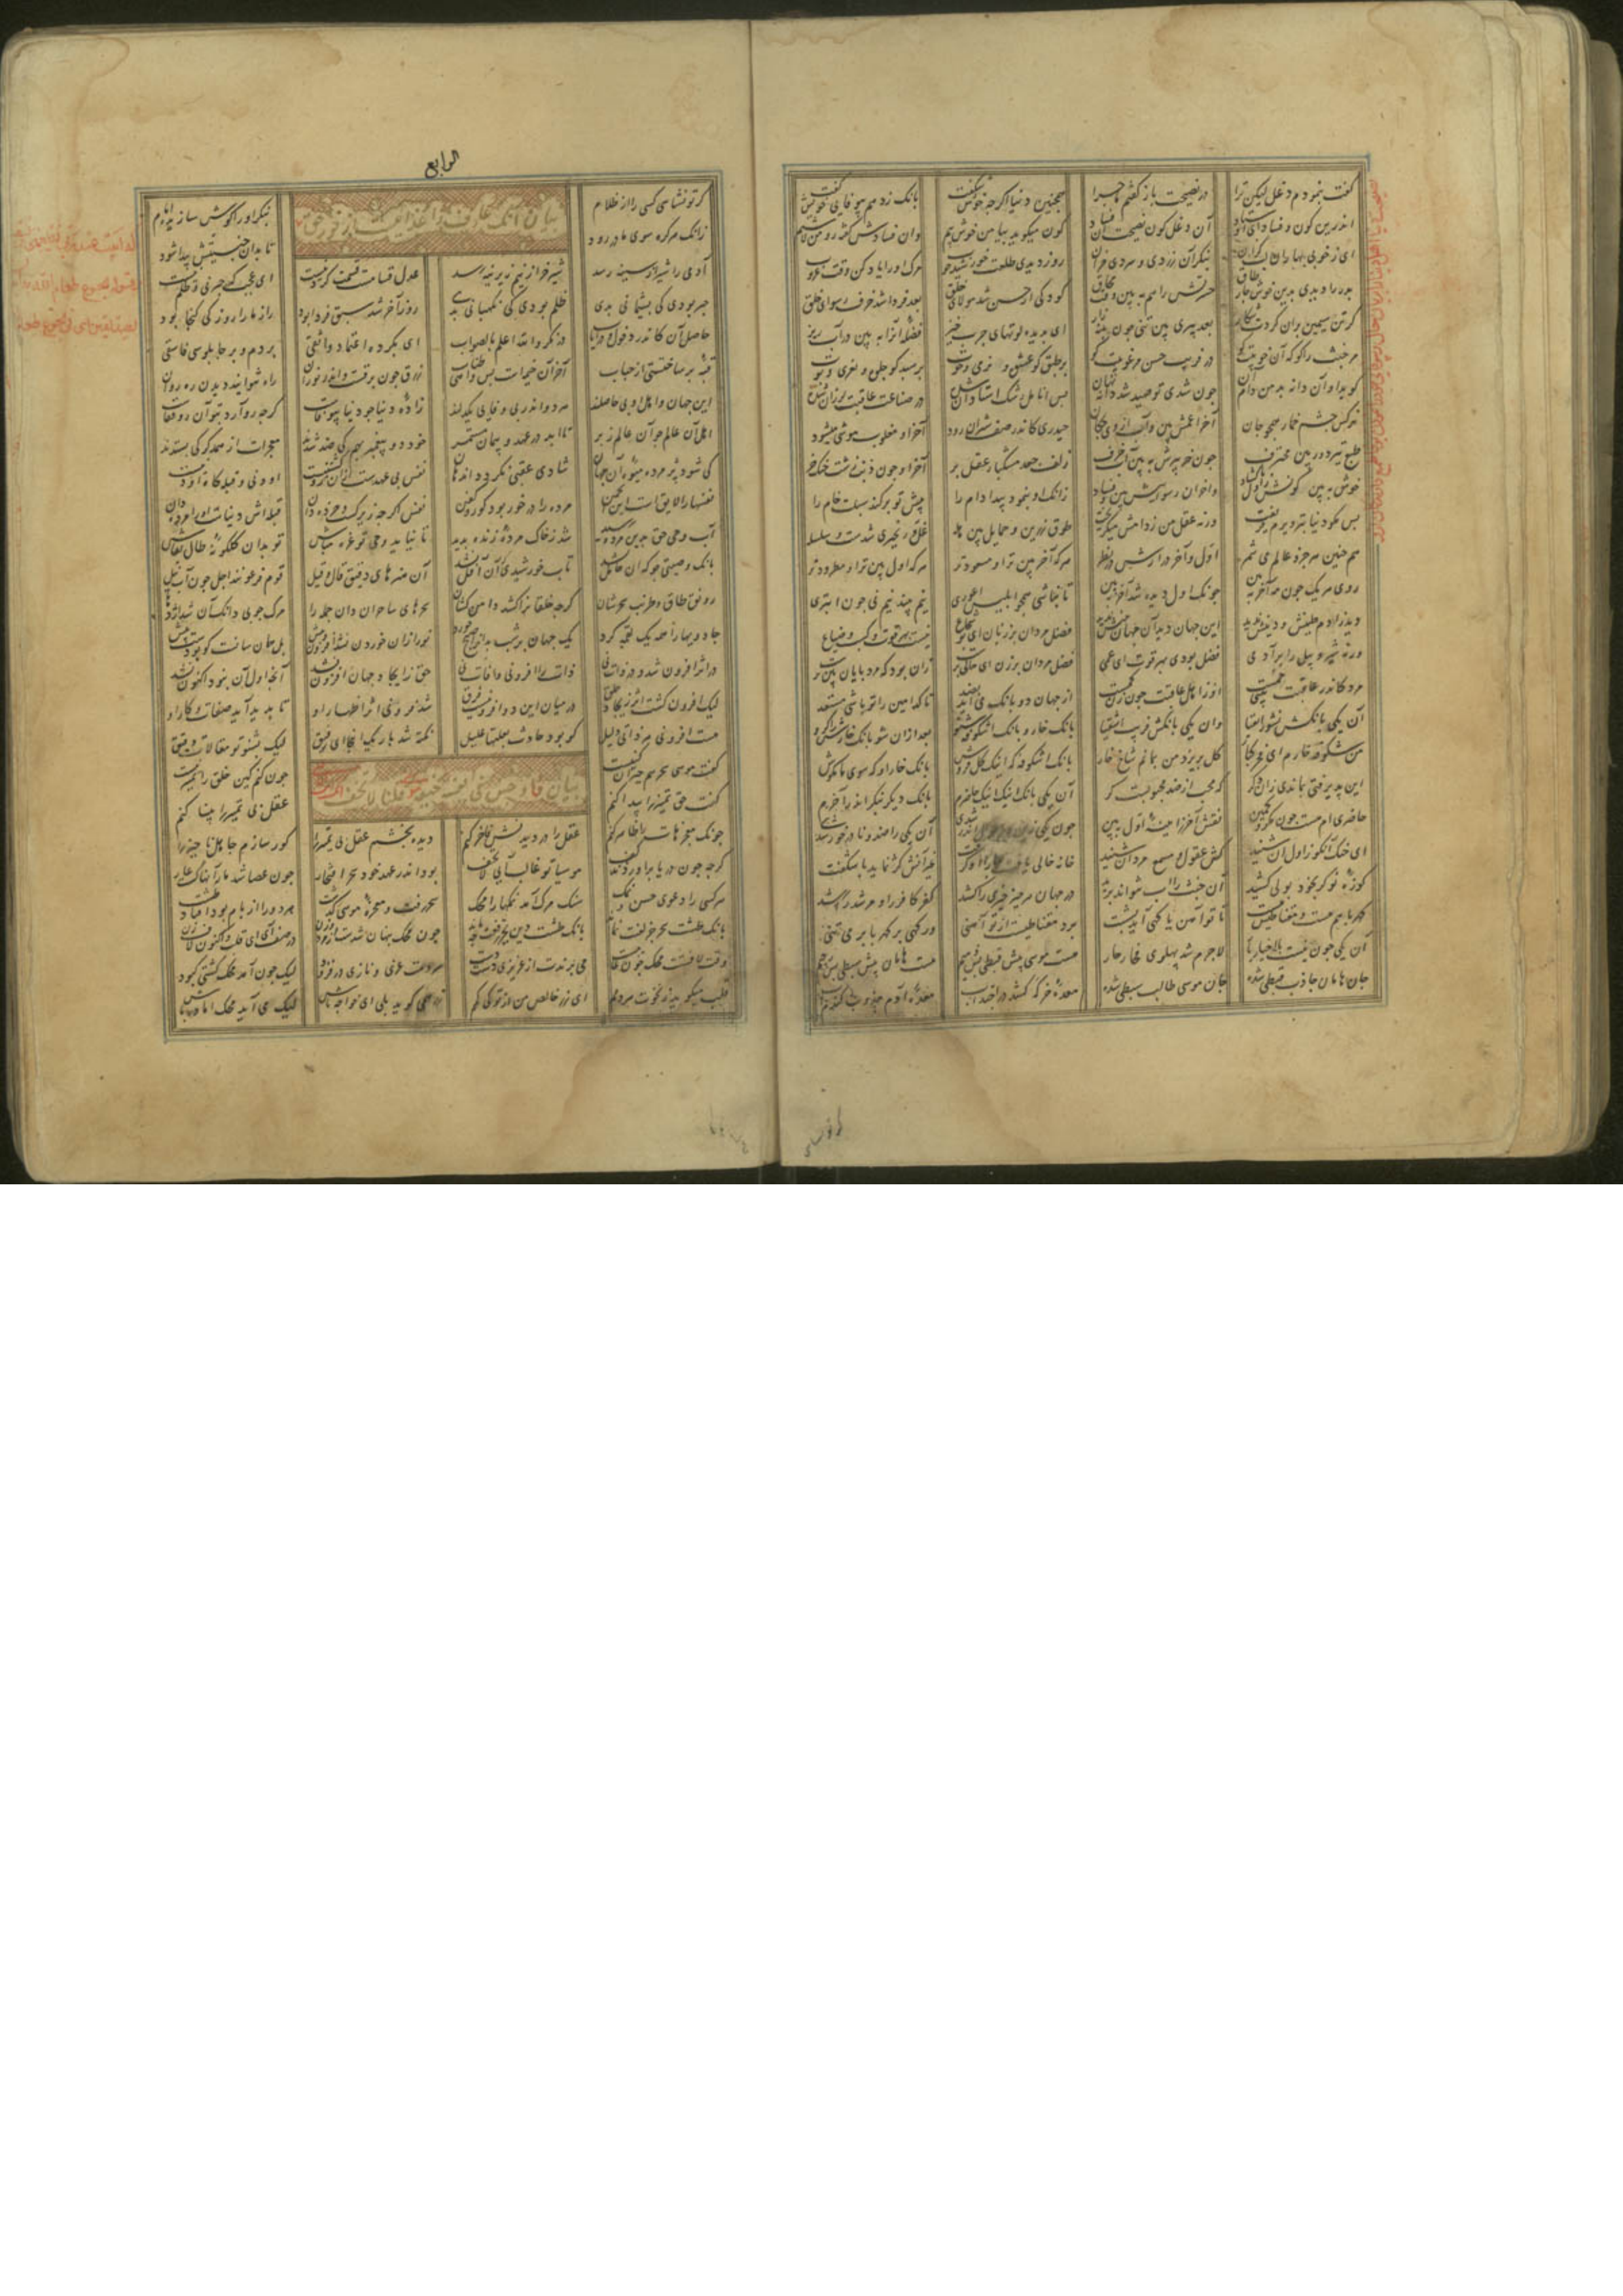 گفت بنمودم دغل لیکن ترا در نصیحت باز گفتم ماجرا همچنین دنیا اگرچه خوش شکفت بانگ زد هم بی وفایی خویش گفت
اندرین کون و فساد ای اوستاد آن دغل کون نصیحت آن فساد کون میگوید بیا من خوش پیم وان فسادش گفته رو من لا شیم
ای ز خوبی بهاران لب گزان بنگر آن زردی و سردی خزان روز دیدی طلعت خورشید خوب مرگ او را یاد کن وقت غروب
بدر را دیدی بدین خوش چار طاق حسرتش را هم به بین وقت محاق کودکی از حسن شد مولای خلق بعد فردا شد خرف رسوای خلق
گر تن سیمین بران کردت شکار بعد پیری بین تنی چون پنبه زار ای بدیده لوتهای چرب خیز فضله آنرا به بین در آب ریز
مر خبث را گو که آن خوبیت کو
گوید او آن دانه بد من دام آن چون شدی تو صید شد دانه نهان بس انامل رشک استادان شده در صناعت عاقبت لرزان شده
نرکس چشم خمار همچو جان آخر اعمش بین و آب از وی چکان حیدری کاندر صف شیران رود آخر او مغلوب موشی میشود
طبع تیز دور بین محترف چون خر پیرش به بین آخر خرف زلف جعد مشکبار عقل بر آخر او چون ذنب زشت خنک خر
خوش به بین کونش ز اول با کشاد واخر آن رسواییش بین و فساد زانک او بنمود پیدا دام را پیش تو برکند سبلت خام را
پس مگو دنیا بتزویرم فریفت ورنه عقل من ز دامش میگریخت طوق زرین و حمایل بین هله غل و زنجیری شدست و سلسله
هم چنین هر جزو عالم می شمر اول و آخر درآرش در نظر هر که آخر بین تر او مسعود تر هر که اول بین تر او مطرود تر
روی هر یک چون مه آخر بین چونک اول دیده شد آخر ببین تا نباشی همچو ابلیس اعوری نیم بیند نیم نی چون ابتری
دید طین آدم و دینش ندید این جهان دید آن جهان بینش ندید فضل مردان بر زنان ای بو شجاع نیست بهر قوت و کسب و ضیاع
ورنه شیر و پیل را بر آدمی فضل بودی بهر قوت ای عمی فضل مردان بر زن ای حالی پرست زان بود که مرد پایان بین ترست
مرد کاندر عاقبت بینی خمست او ز اهل عاقبت چون زن کمست از جهان دو بانک می آید بضد تا کدامین را تو باشی مستعد
آن یکی بانکش نشور اتقیا وان یکی بانکش فریب اشقیا بانک خار و بانک اشکوفه شنو بعد ازان شو بانک خارش را گرو
من شکوفه خارم ای فخر کبار گل بریزد من بمانم شاخ خار بانک اشکوفه که اینک گل فروش بانک خار او که سوی ما مکوش
این پذیرفتی بماندی زان دگر که محب از ضد محبوبست کر آن یکی بانک اینک اینک حاضرم بانک دیگر بنگر اندر آخرم
حاضری ام هست چون مکر و کمین نقش آخر ز آینه اول ببین چون یکی آن یکی را ضد و نا درخور شدی
ای خنک آنکو ز اول آن شنید کش عقول و مسمع مردان شنید خانه خالی یافت جا را او گرفت غیر آنش کژ نماید یا شگفت
کوزه نو کو بخود بولی کشید آن خبث را آب نتواند برید در جهان هر چیز چیزی را کشد کفر کافر را و مرشد را رشد
کهربا هم هست و مقناطیس هست تا تو آهن یا کهی آیی بشست برد مقناطیست ار تو آهنی ور کهی بر کهربا بر می تنی
آن یکی چون نیست با اخیار یار لاجرم شد پهلوی فجار جار هست موسی پیش قبطی بس ذمیم هست هامان پیش سبطی بس رجیم
جان هامان جاذب قبطی شده جان موسی طالب سبطی شده معده خر که کشد در اجتذاب معده آدم جذوب گندم آب
الرابع
گر تو نشناسی کسی را از ظلام بیان آنک عارف را غذاییست از نور حق بنگر او را کوش سازیده امام
زانک هر کره سوی مادر رود تا بدان جنسیتش پیدا شود
آدمی را شیر از سینه رسد شیر خر از نیم زیرینه رسد عدل قسامست قسمت کردنیست ای عجب که جبر نی و ظلم نیست
جبر بودی کی پشیمانی بدی ظلم بودی کی نگهبانی بدی روز آخر شد سبق فردا بود راز ما را روز کی گنجا بود
حاصل آن کاندر دخول و در ایاب در نکر والله اعلم بالصواب ای بکرده اعتماد واثقی بر دم و بر چاپلوسی فاسقی
قبه بر ساختستی از حباب آخر آن خیمه است بس واهی طناب زرق چون برقست و اندر نور آن راه نتوانند دیدن ره روان
این جهان و اهل او بی حاصلند هر دو اندر بی وفایی یکدلند زاده دنیا چو دنیا بی وفاست گرچه رو آرد بتو آن رو قفاست
اهل آن عالم چو آن عالم ز بر تا ابد در عهد و پیمان مستمر خود دو پیغمبر بهم کی ضد شدند معجزات از همدگر کی بستدند
کی شود پژمرده میوه آن جهان شادی عقبی نگردد اندهان نفس بی عهدست زان رو کشتنیست او دنی و قبله گاه او دنیست
نفسها را لایق است این انجمن مرده را در خور بود گور و کفن نفس اگرچه زیرکست و خرده دان قبله اش دنیاست او را مرده دان
آب وحی حق بدین مرده رسید شد ز خاک مرده زنده پدید تا نیاید وحی تو غره مباش تو بدان گلگونه طال بقاش
بانک و صیتی جو که آن خامل نشد تاب خورشیدی که آن آفل نشد آن هنرهای دقیق و قال و قیل قوم فرعونند اجل چون آب نیل
رونق و طاق و طرنب و سحرشان گرچه خلقان را کشد دامن کشان سحرهای ساحران دان جمله را مرگ چوبی دانک آن شد اژدها
جادویها را همه یک لقمه کرد یک جهان پر شب بد آنرا صبح خورد نور ازان خوردن نشد افزون و بیش بل همان سانست کو بودست پیش
در اثر افزون شد و در ذات نی ذات را افزونی و آفات نی حق ز ایجاد جهان افزون نشد آنچه اول آن نبود اکنون نشد
لیک افزون گشت اثر ز ایجاد خلق در میان این دو افزونیست فرق تا پدید آید صفات و کار او
هست افزونی هر ذاتی دلیل کو بود حادث بعلتها علیل نکته شد باریک اینجا ای رفیق لیک بشنو تو مقالات دقیق
گفت موسی سحر هم حیران کنیست بیان فاوجس فی نفسه خیفة موسی قلنا لا تخف چون کنم کین خلق را تمییز نیست
گفت حق تمییز را پیدا کنم عقل بی تمییز را بینا کنم
چونک معجزهات را ظاهر کنم عقل را در دید نش فاخر کنم دیده بخشم عقل بی تمییز را کور سازم جاهل ناچیز را
گرچه چون دریا برآوردند کف موسیا تو غالب آیی لا تخف بود اندر عهد خود سحر افتخار چون عصا شد مار آنها گشت عار
هر کسی را دعوی حسن و نمک سنک مرگ آمد نمکها را محک سحر رفت و معجزه موسی گذشت هر دو را از بام بود افتاد طشت
بانک طشت سحر جز لعنت چه ماند بانک طشت دین بجز رفعت چه ماند چون محک پنهان شدست از مرد و زن در صف آ ای قلب و اکنون لاف زن
وقت لافستت محک چون غایبست می برندت از عزیزی دست دست لیک چون آمد محک گشتی کبود
قلب میگوید ز نخوت هر دمم ای زر خالص من از تو کی کمم زر همی گوید بلی ای خواجه تاش لیک می آید محک آماده باش